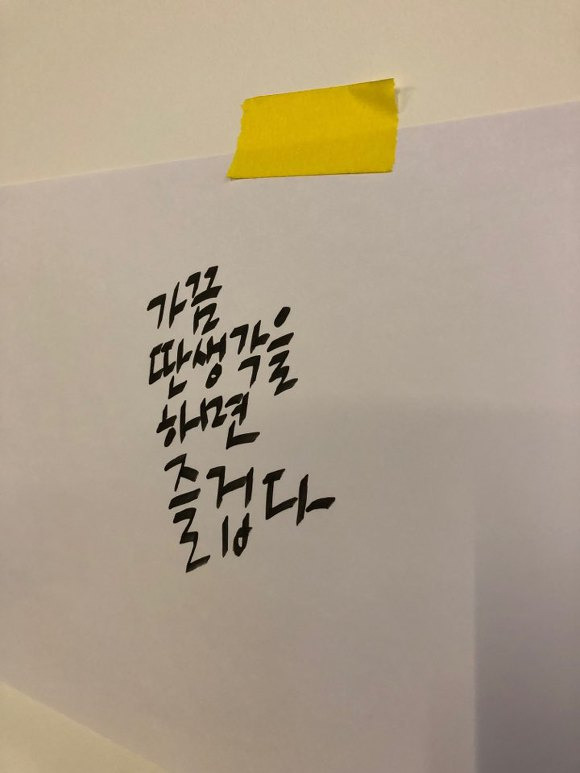 가끔
딴생각을
하면
즐겁다